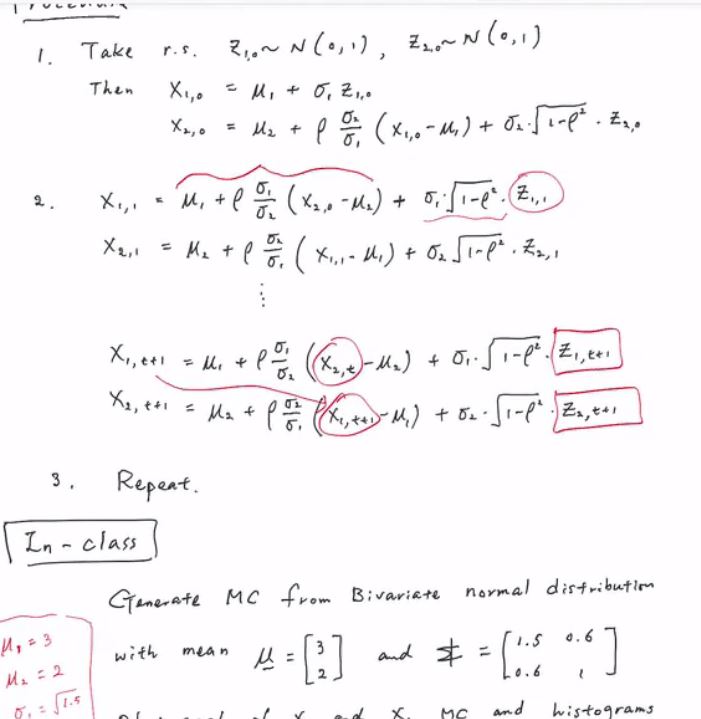 Procedure
1. Take r.s. Z₁,₀ ~ N(0,1), Z₂,₀ ~ N(0,1)
Then X₁,₀ = μ₁ + σ₁ Z₁,₀
X₂,₀ = μ₂ + ρ σ₂/σ₁ (X₁,₀ - μ₁) + σ₂·√(1-ρ²) · Z₂,₀
2. X₁,₁ = μ₁ + ρ σ₁/σ₂ (X₂,₀ - μ₂) + σ₁·√(1-ρ²) · Z₁,₁
X₂,₁ = μ₂ + ρ σ₂/σ₁ (X₁,₁ - μ₁) + σ₂ √(1-ρ²) · Z₂,₁
⋮
X₁,ₜ₊₁ = μ₁ + ρ σ₁/σ₂ (X₂,ₜ - μ₂) + σ₁·√(1-ρ²) · Z₁,ₜ₊₁
X₂,ₜ₊₁ = μ₂ + ρ σ₂/σ₁ (X₁,ₜ₊₁ - μ₁) + σ₂·√(1-ρ²) · Z₂,ₜ₊₁
3. Repeat.
In-class
Generate MC from Bivariate normal distribution
with mean μ = [3 2] and Σ = [1.5 0.6 0.6 1]
μ₁ = 3
μ₂ = 2
σ₁ = √1.5
and X₂ MC and histograms